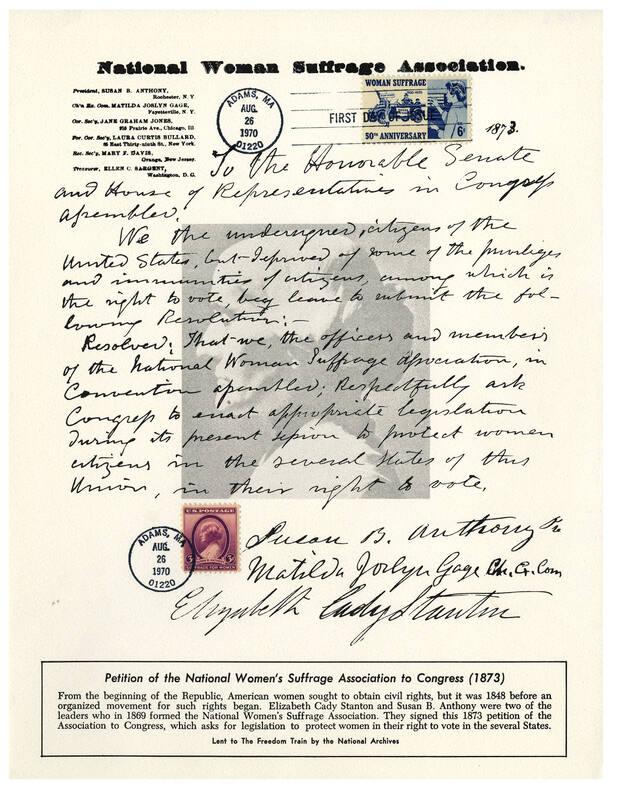 National Woman Suffrage Association.
President, SUSAN B. ANTHONY,
Rochester, N. Y
Ch'n Ex. Com. MATILDA JOSLYN GAGE,
Fayetteville, N. Y.
Cor. Sec'y, JANE GRAHAM JONES,
910 Prairie Ave., Chicago, Ill
For. Cor. Sec'y, LAURA CURTIS BULLARD,
85 East Thirty-ninth St., New York.
Rec. Sec'y, MARY F. DAVIS,
Orange, New Jersey.
Treasurer, ELLEN C. SARGENT,
Washington, D. C.
ADAMS, MA
AUG.
26
1970
01220
FIRST DAY OF ISSUE
WOMAN SUFFRAGE
50th ANNIVERSARY 6¢
1873.
To the Honorable Senate
and House of Representatives in Congress
assembled.
We the undersigned, citizens of the
United States, but deprived of some of the privileges
and immunities of citizens, among which is
the right to vote, beg leave to submit the fol-
lowing Resolution:-
Resolved; That we, the officers and members
of the National Woman Suffrage Association, in
Convention assembled, Respectfully ask
Congress to enact appropriate legislation
during its present session to protect women
citizens in the several States of this
Union, in their right to vote.
U.S. POSTAGE
3 3
SUFFRAGE FOR WOMEN
ADAMS, MA
AUG.
26
1970
01220
Susan B. Anthony
Matilda Joslyn Gage Ch. Ex. Com
Elizabeth Cady Stanton
Petition of the National Women's Suffrage Association to Congress (1873)
From the beginning of the Republic, American women sought to obtain civil rights, but it was 1848 before an
organized movement for such rights began. Elizabeth Cady Stanton and Susan B. Anthony were two of the
leaders who in 1869 formed the National Women's Suffrage Association. They signed this 1873 petition of the
Association to Congress, which asks for legislation to protect women in their right to vote in the several States.
Lent to The Freedom Train by the National Archives